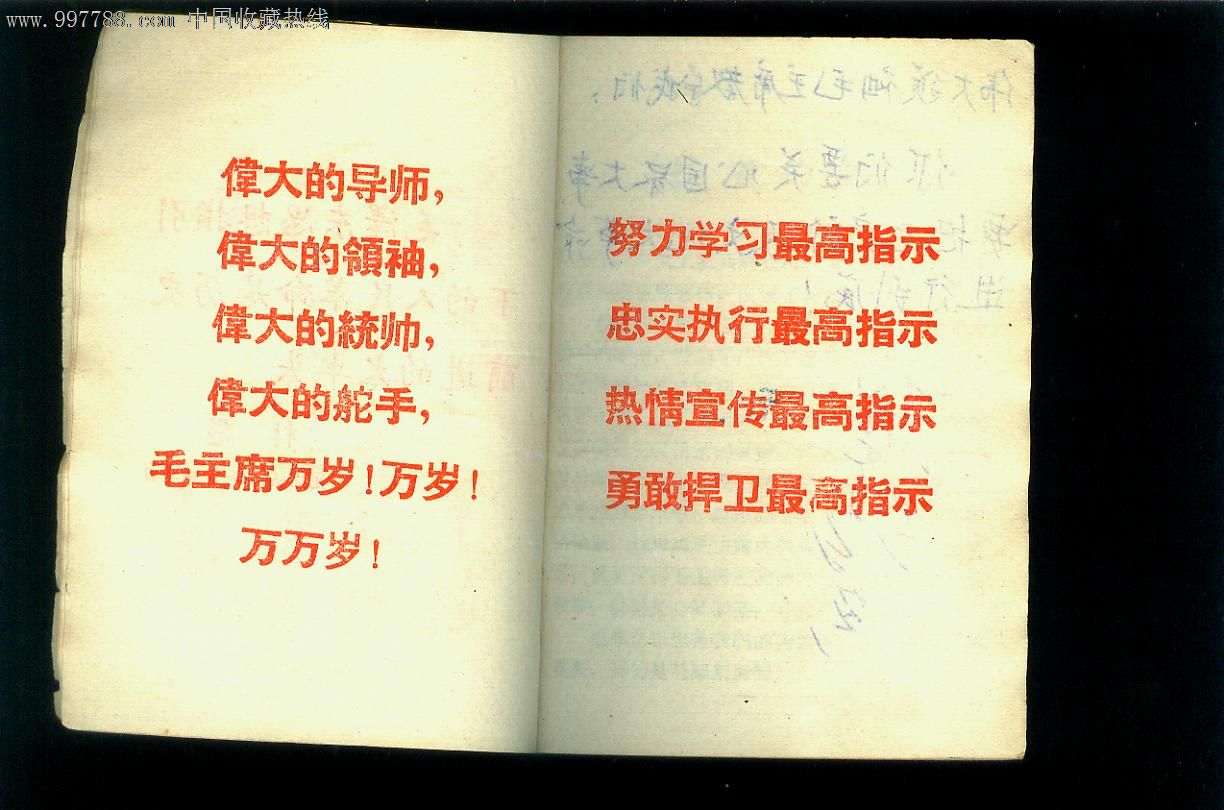 www.997788.com 中国收藏热线
偉大的导师,
偉大的領袖,
偉大的統帅,
偉大的舵手,
毛主席万岁!万岁!
万万岁!
努力学习最高指示
忠实执行最高指示
热情宣传最高指示
勇敢捍卫最高指示